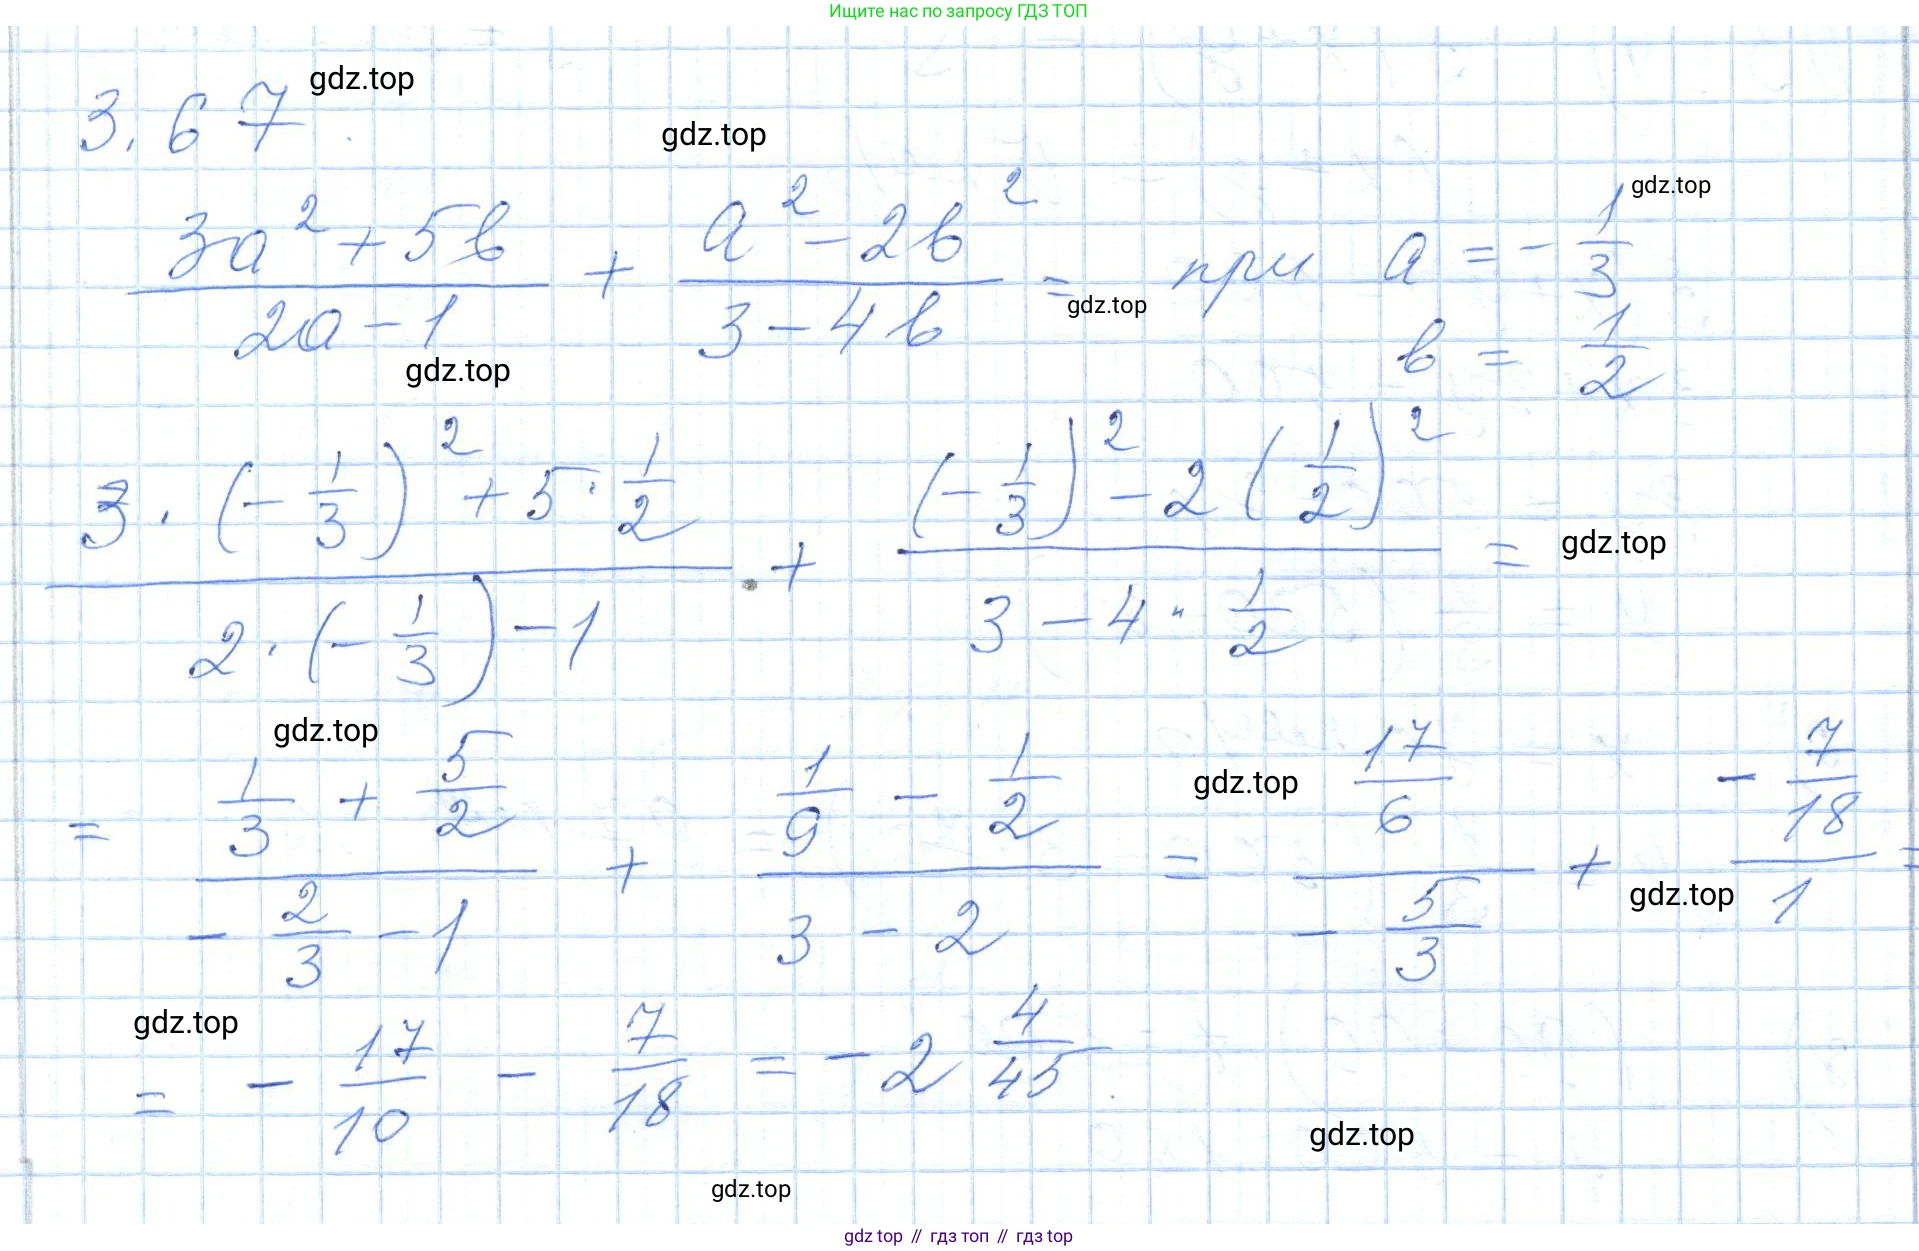 Ищите нас по запросу ГДЗ ТОП
3.67 gdz.top
gdz.top
(3a² + 5b)/(2a - 1) + (a² - 2b²)/(3 - 4b) = при a = -1/3 gdz.top
gdz.top
b = 1/2
gdz.top
(3 · (-1/3)² + 5 · 1/2)/(2 · (-1/3) - 1) + ((-1/3)² - 2(1/2)²)/(3 - 4 · 1/2) = gdz.top
gdz.top
= (1/3 + 5/2)/(-2/3 - 1) + (1/9 - 1/2)/(3 - 2) = gdz.top (17/6)/(-5/3) + (-7/18)/1 =
gdz.top
gdz.top
= -17/10 - 7/18 = -2 4/45.
gdz.top
gdz.top
gdz top // гдз топ // гдз top